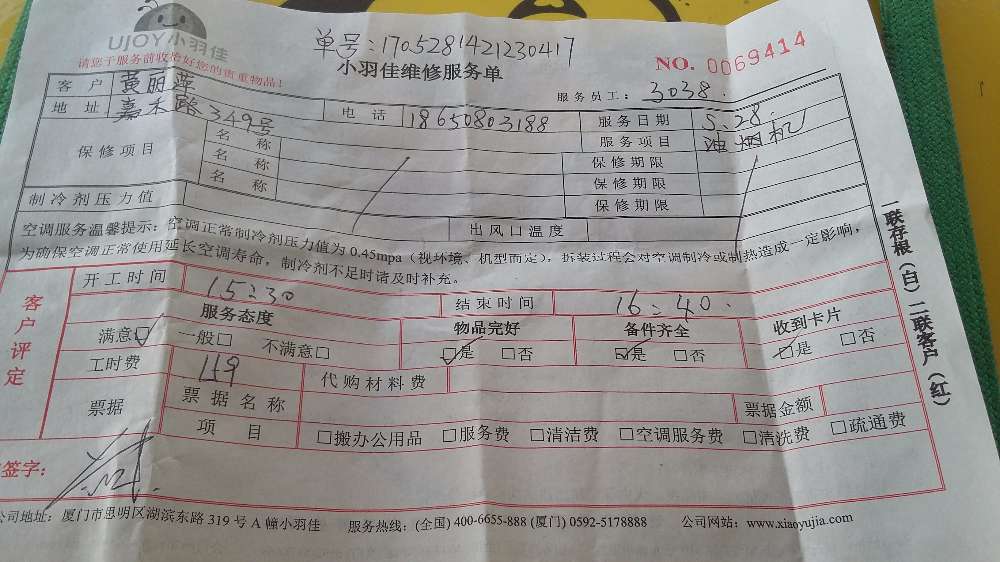 UJOY小羽佳
单号:1705281421230417
请您于服务前收拾好您的贵重物品!
小羽佳维修服务单
NO. 0069414
服务员工: 3038.
客户 黄丽萍
地址 嘉禾路349号 电话 18650803188 服务日期 5.28
保修项目 名称 服务项目 油烟机
名称 保修期限
名称 保修期限
保修期限
制冷剂压力值 出风口温度
空调服务温馨提示:空调正常制冷剂压力值为0.45mpa(视环境、机型而定),拆装过程会对空调制冷或制热造成一定影响,
为确保空调正常使用延长空调寿命,制冷剂不足时请及时补充。
客户评定
开工时间 15:30 结束时间 16:40.
服务态度 物品完好 备件齐全 收到卡片
满意□ 一般□ 不满意□ □是 □否 □是 □否 □是 □否
工时费 159 代购材料费
票据 票据名称 票据金额
项目 □搬办公用品 □服务费 □清洁费 □空调服务费 □清洗费 □疏通费
签字:
公司地址:厦门市思明区湖滨东路319号A幢小羽佳 服务热线:(全国) 400-6655-888 (厦门) 0592-5178888 公司网站:www.xiaoyujia.com
一联存根(白)二联客户(红)